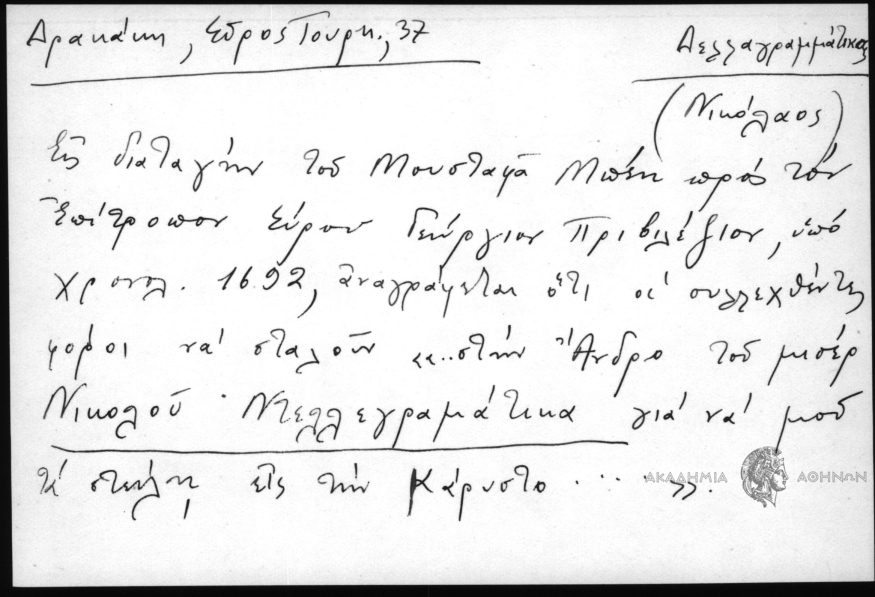 Δρακάκη, Σύρος Τουρκ., 37
Δελλαγραμμάτικας
(Νικόλαος)
Εἰς διαταγήν τοῦ Μουσταφᾶ Μπέη πρός τόν
Ἐπίτροπον Σύρου Γεώργιον Πριβιλέζιον, ὑπό
χρονολ. 1692, ἀναγράφεται ὅτι οἱ συλλεχθέντες
φόροι νά σταλοῦν «..στήν Ἄνδρο τοῦ μισέρ
Νικολοῦ Ντελλεγραμάτικα γιά νά μοῦ
τά στείλη εἰς τήν Κάρυστο .... ».
ΑΚΑΔΗΜΙΑ ΑΘΗΝΩΝ